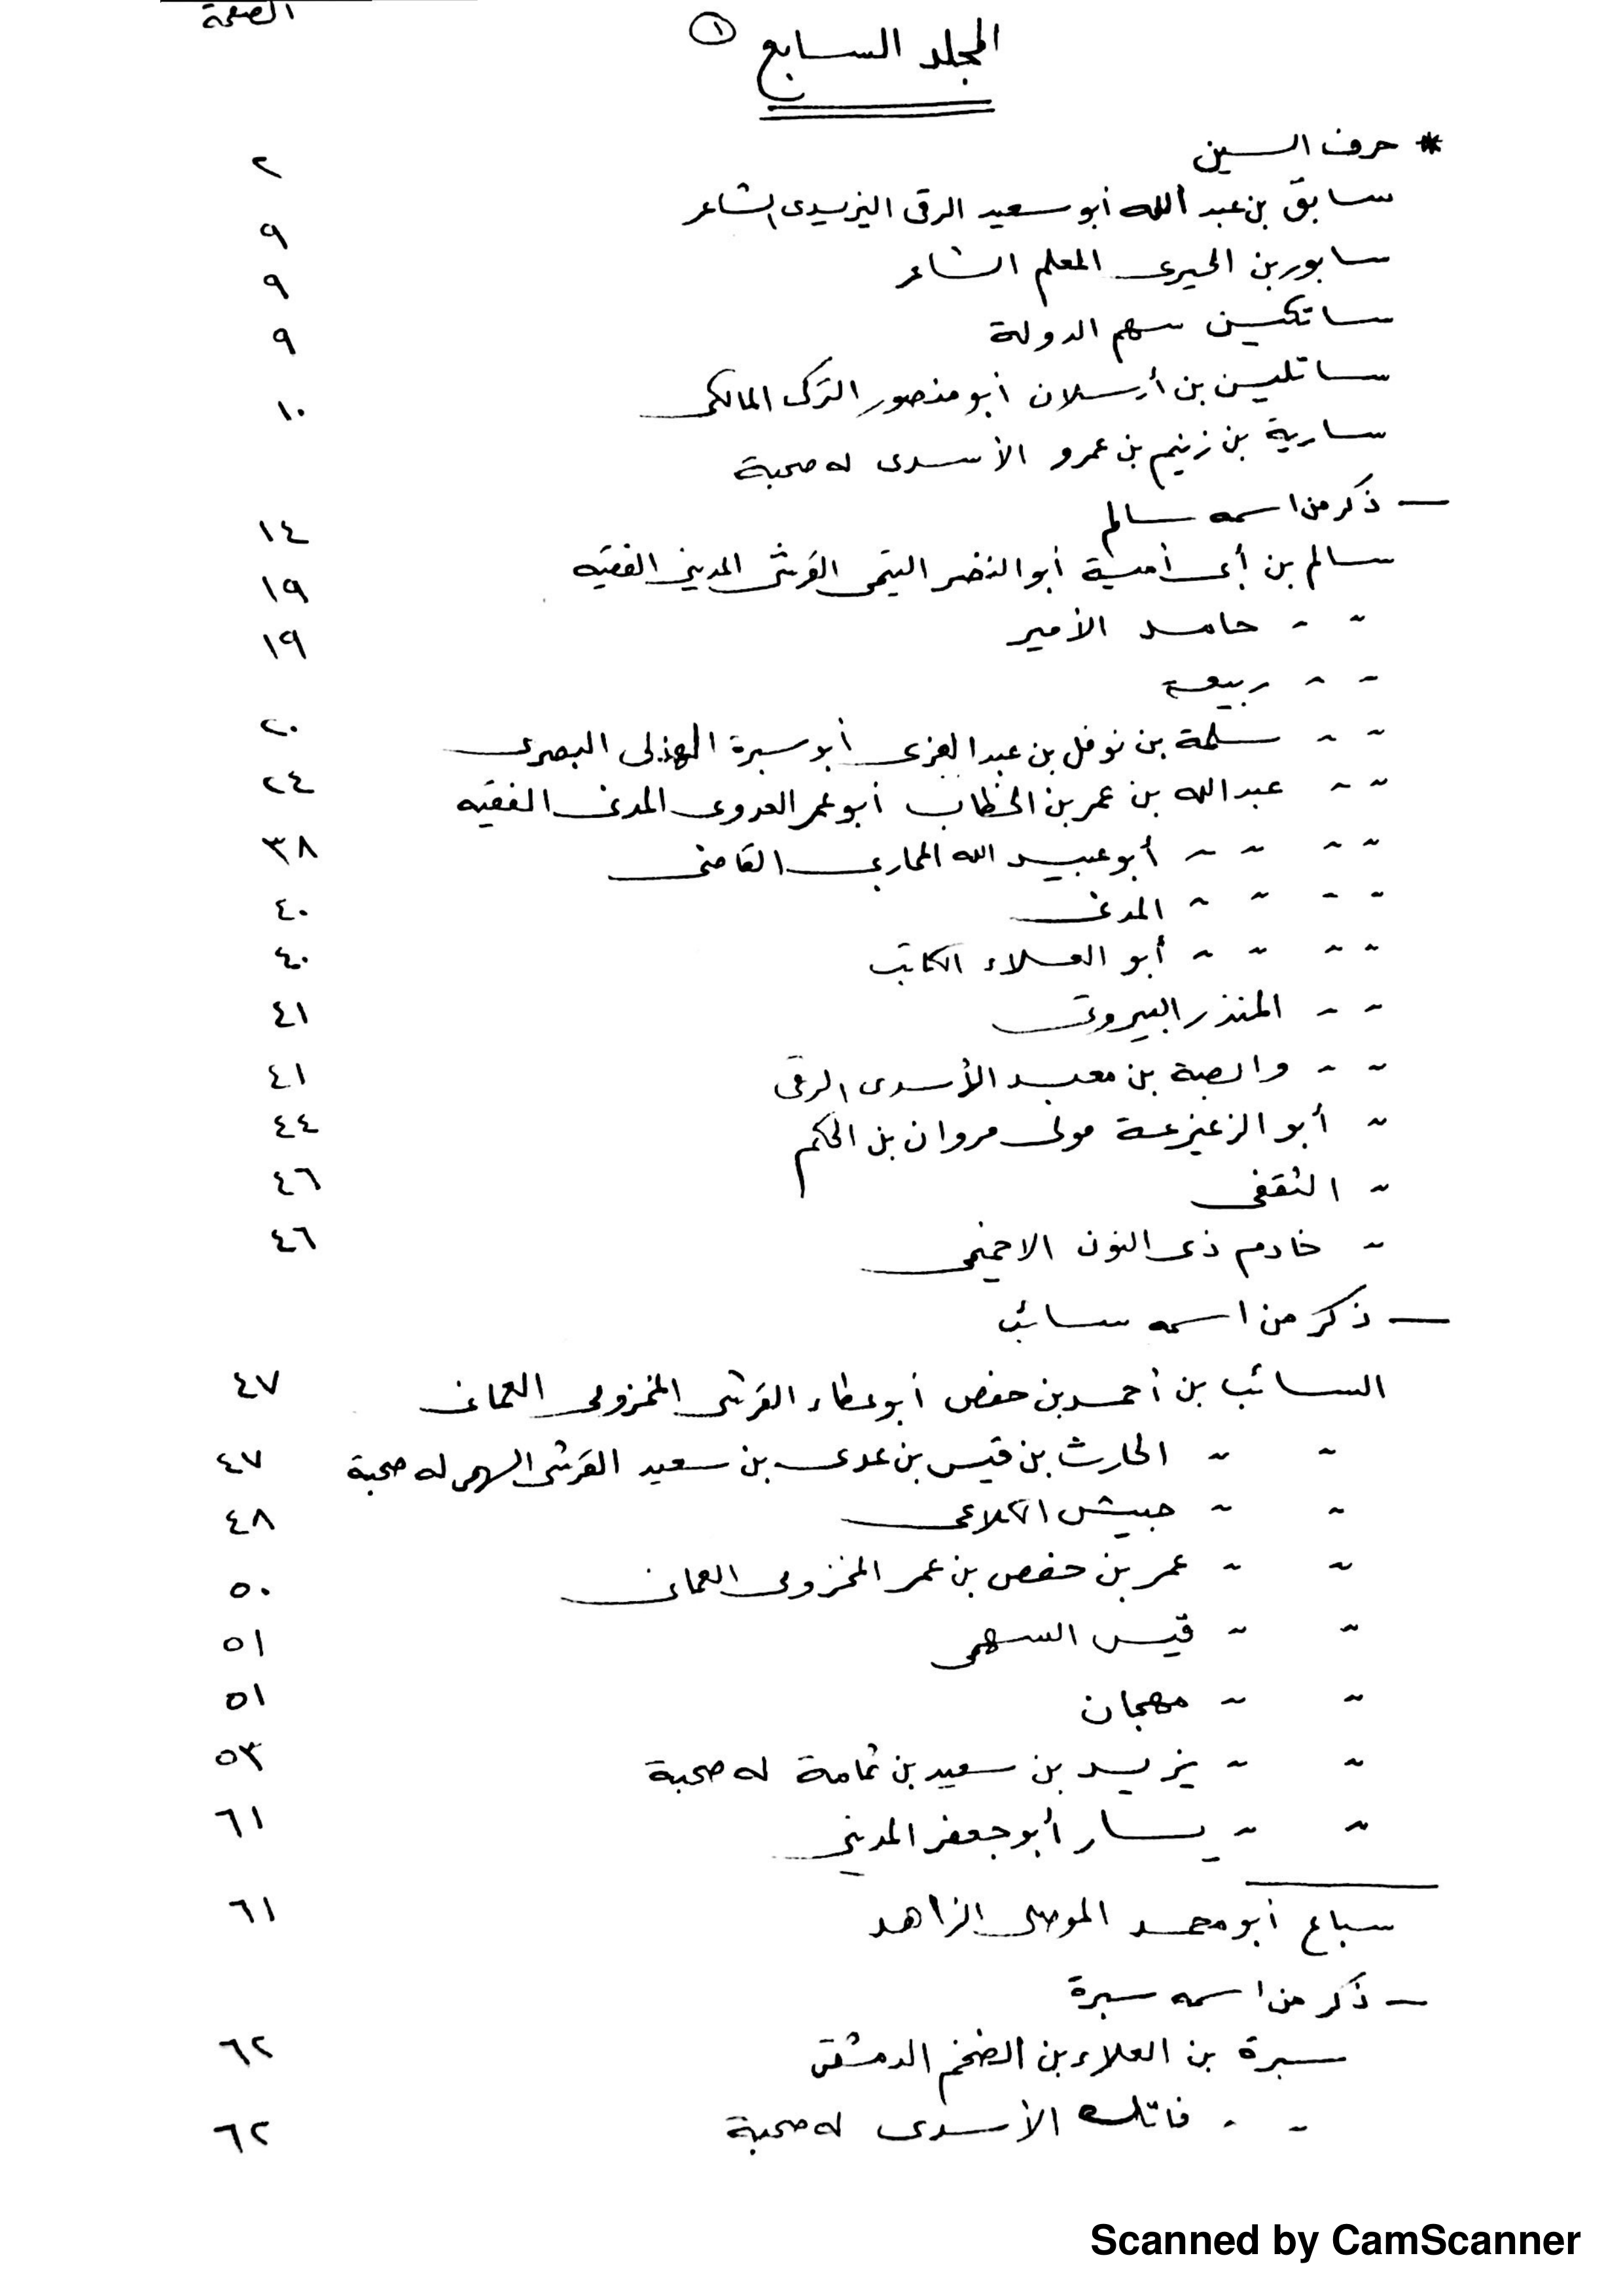 الصفحة
المجلد السابع ١
* حرف السين
سابق بن عبد الله أبو سعيد الرقى اليزيدى الشاعر ٢
سابور بن الحيرى المعلم الشاعر ٩
ساتكين سهم الدولة ٩
ساتلين بن أرسلان أبو منصور التركى المالكى ٩
سارية بن زنيم بن عمرو الأسدى له صحبة ١٠
— ذكر من اسمه سالم
سالم بن أبى أمية أبو النضر التيمى القرشى المدينى الفقيه ١٤
〃 〃 حامد الأمير ١٩
〃 〃 ربيعة ١٩
〃 〃 سلمة بن نوفل بن عبد العزى أبو سبرة الهذلى البصرى ٢٠
〃 〃 عبد الله بن عمر بن الخطاب أبو عمر العدوى المدنى الفقيه ٢٤
〃 〃 〃 〃 أبو عبيد الله المحاربى القاضى ٣٨
〃 〃 〃 〃 المدنى ٤٠
〃 〃 〃 〃 أبو العلاء الكاتب ٤٠
〃 〃 المنذر البيروتى ٤١
〃 〃 وابصة بن معبد الأسدى الرقى ٤١
〃 أبو الزعيزعة مولى مروان بن الحكم ٤٤
〃 الثقفى ٤٦
〃 خادم ذى النون الاخميمى ٤٦
— ذكر من اسمه سائب
السائب بن أحمد بن حفص أبو عطاء القرشى المخزومى العمانى ٤٧
〃 〃 الحارث بن قيس بن عدى بن سعيد القرشى السهمى له صحبة ٤٧
〃 〃 حبيش الكلاعى ٤٨
〃 〃 عمر بن حفص بن عمر المخزومى العمانى ٥٠
〃 〃 قيس السهمى ٥١
〃 〃 مهجان ٥١
〃 〃 يزيد بن سعيد بن ثمامة له صحبة ٥٣
〃 〃 يسار أبو جعفر المدينى ٦١
سباع أبو محمد الموصلى الزاهد ٦١
— ذكر من اسمه سبرة
سبرة بن العلاء بن الضخم الدمشقى ٦٢
〃 〃 فاتك الأسدى له صحبة ٦٢
Scanned by CamScanner